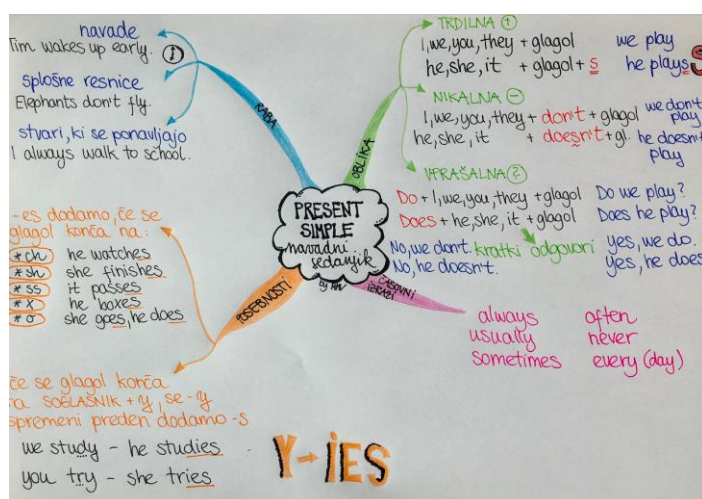 PRESENT
SIMPLE
navadni
sedanjik
RABA
navade
Tim wakes up early.
splošne resnice
Elephants don't fly.
stvari, ki se ponavljajo
I always walk to school.
OBLIKA
TRDILNA +
I, we, you, they + glagol we play
he, she, it + glagol + s he plays S
NIKALNA -
I, we, you, they + don't + glagol we don't play
he, she, it + doesn't + gl. he doesn't play
VPRAŠALNA ?
Do + I, we, you, they + glagol Do we play?
Does + he, she, it + glagol Does he play?
No, we don't. kratki odgovori yes, we do.
No, he doesn't. Yes, he does
ČASOVNI
IZRAZI
always often
usually never
sometimes every (day)
POSEBNOSTI
-es dodamo, če se
glagol konča na:
*ch he watches
*sh she finishes
*ss it passes
*x he boxes
*o she goes, he does
če se glagol konča
na SOGLASNIK + y, se -y
spremeni preden dodamo -s
we study - he studies
you try - she tries
Y → IES